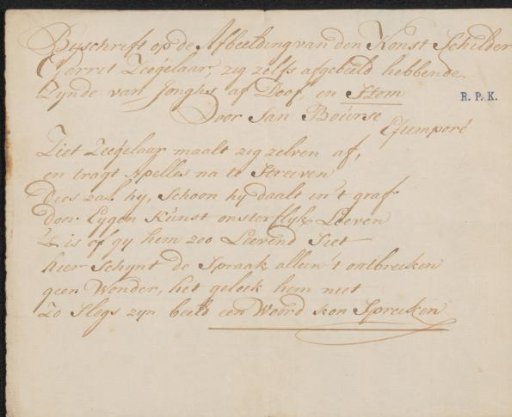 Bijschrift op de Afbeelding van den Konst Schilder
Gerrit Zeegelaar, zig zelfs afgebeeld hebbende
Zynde van Jonghs af Doof, en Stom
R. P. K.
Door Jan Boùrse
Extemporé
Ziet Zeegelaar maalt zig zelven af,
en tragt Apelles na te Streeven
Dies zal hy, Schoon hy daalt in't graf
door Eygen Kùnst onsterflyk Leeven
't is of gy hem zoo Leevend Siet
hier Schynt de Spraak alleen 't ontbreeken
geen Wonder, het geleek hem niet
Zo Slegs zyn beeld een Woord kon Spreeken